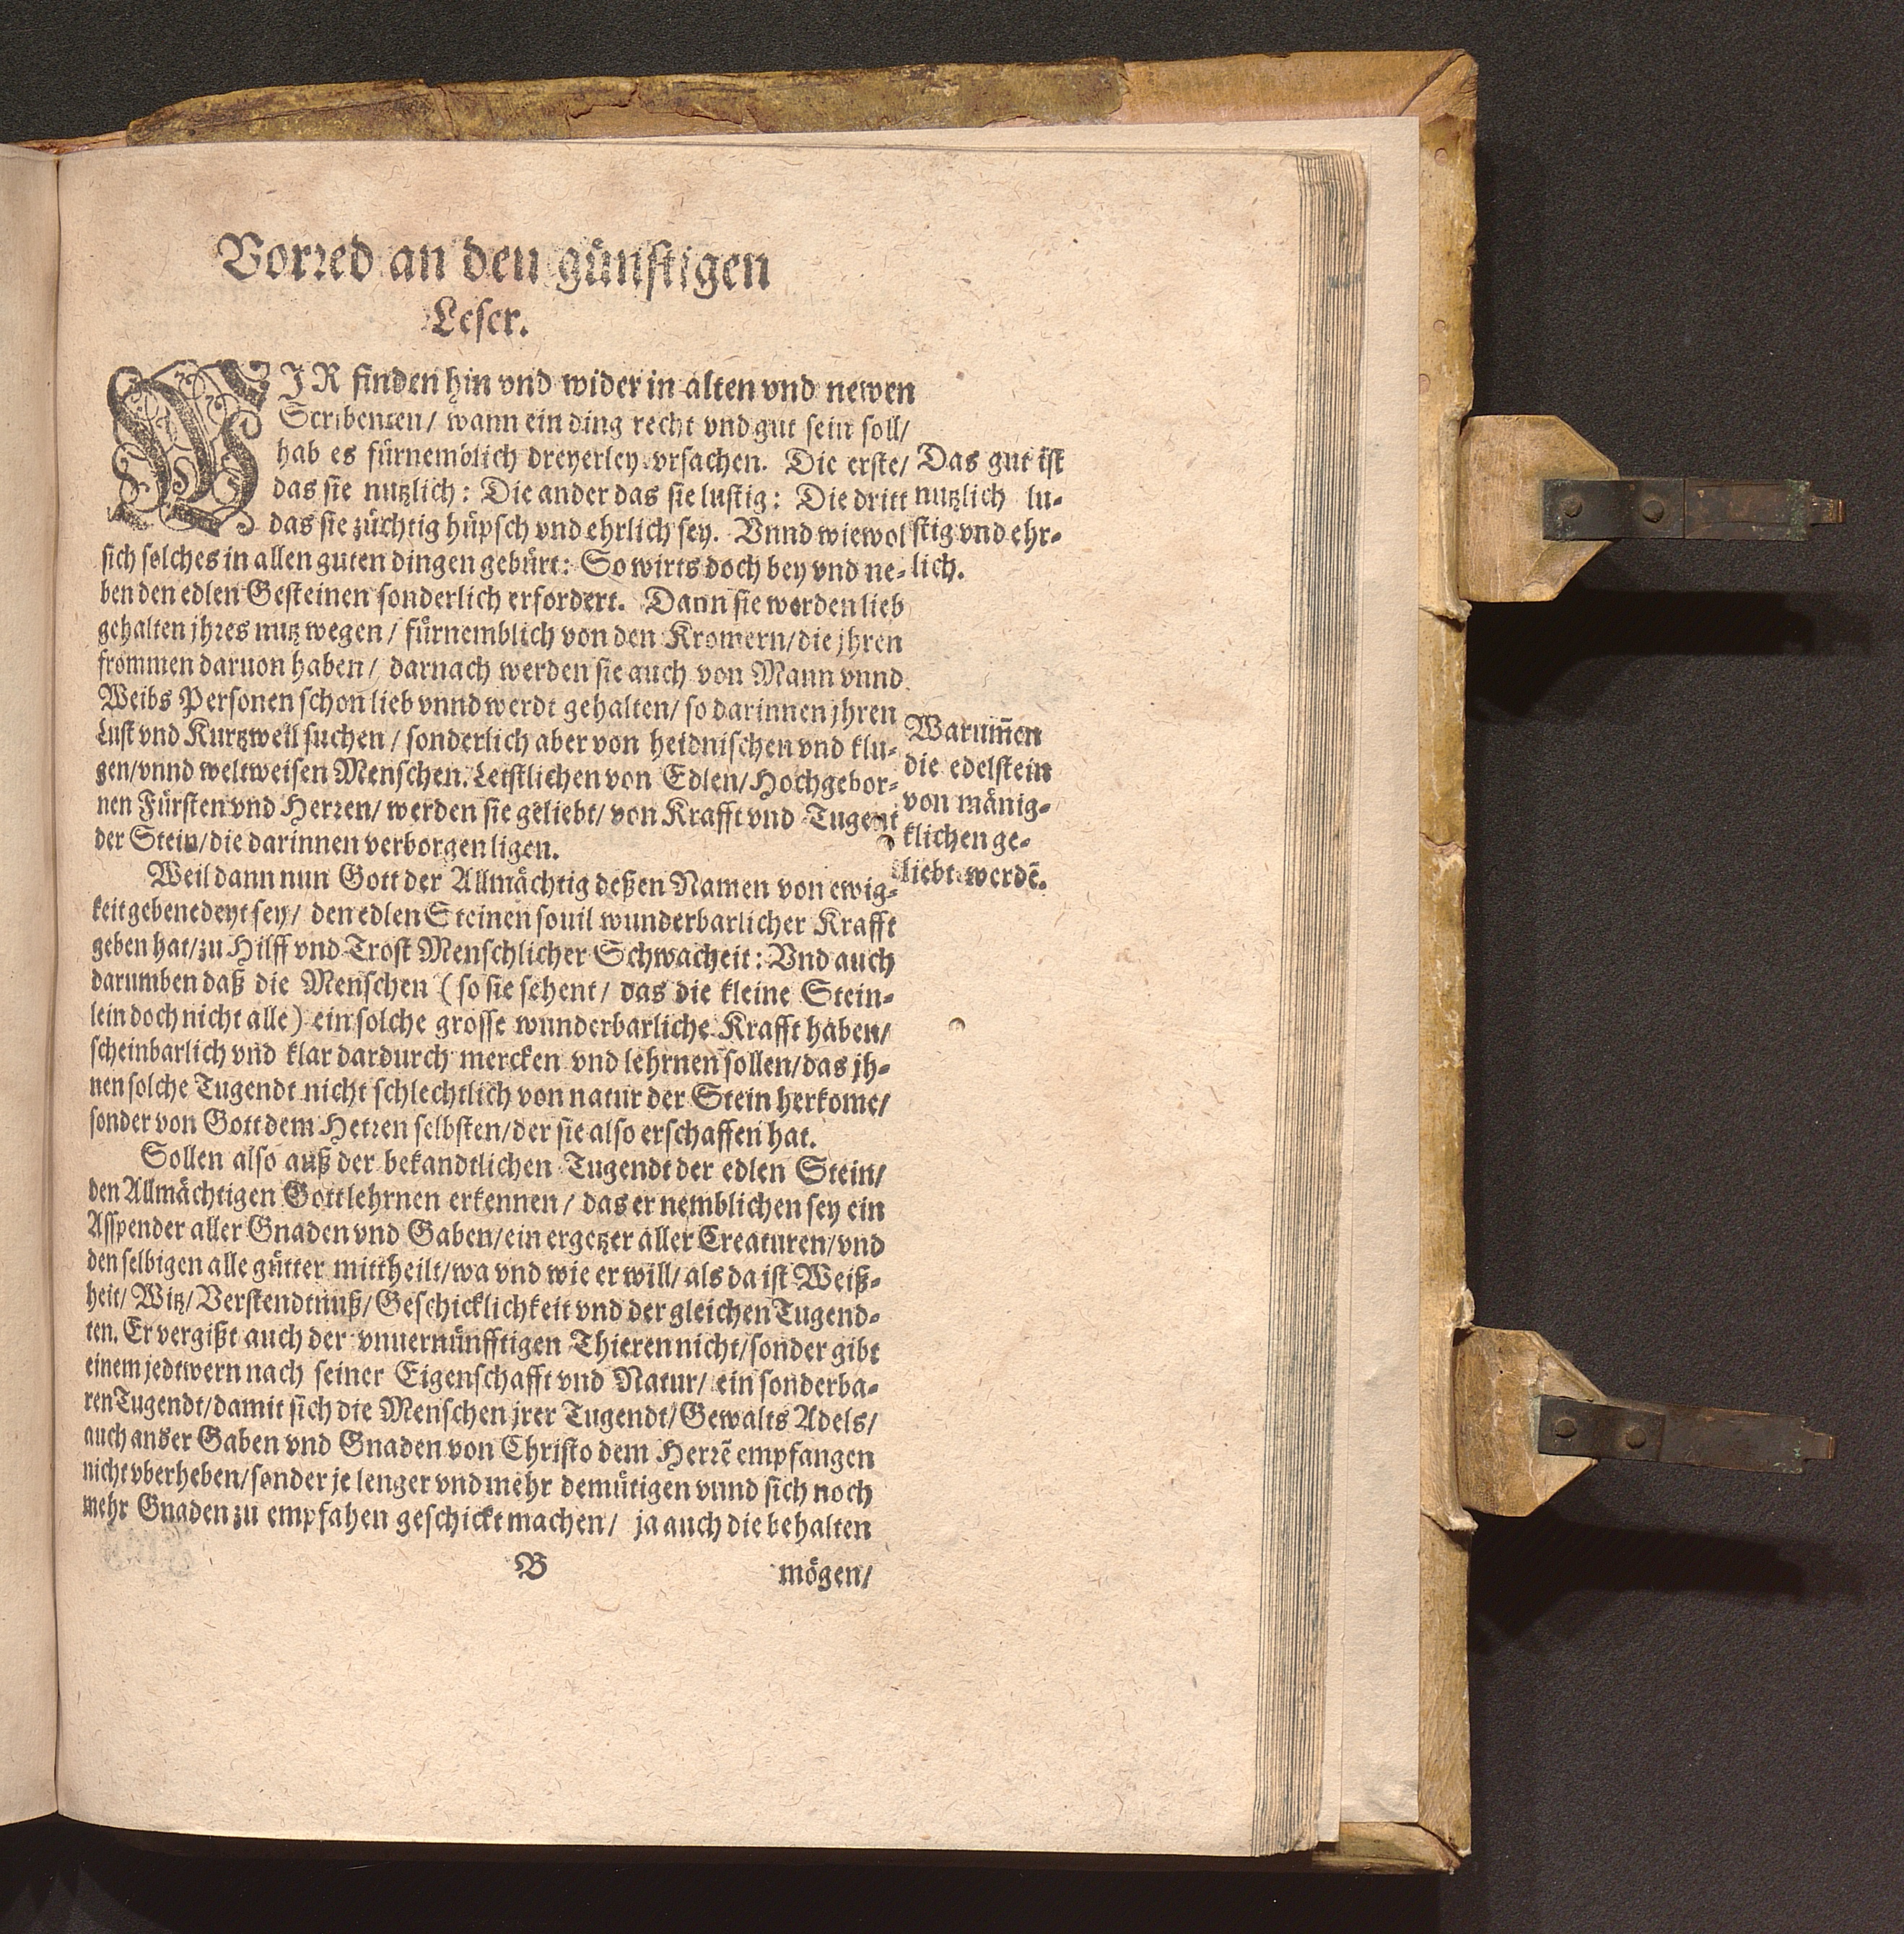 Vorred an den günstigen
Leser.
WIR finden hin vnd wider in alten vnd newen
Scribenten/ wann ein ding recht vnd gut sein soll/
hab es fürnemblich dreyerley vrsachen. Die erste/
das sie nutzlich: Die ander das sie lustig: Die dritt
das sie züchtig hüpsch vnd ehrlich sey. Vnnd wiewol
sich solches in allen guten dingen gebürt: So wirts doch bey vnd ne-
ben den edlen Gesteinen sonderlich erfordert. Dann sie werden lieb
gehalten jhres nutz wegen/ fürnemblich von den Kromern/ die jhren
frommen daruon haben/ darnach werden sie auch von Mann vnnd
Weibs Personen schon lieb vnnd werdt gehalten/ so darinnen jhren
Lust vnd Kurtzweil suchen/ sonderlich aber von heidnischen vnd klu-
gen/ vnnd weltweisen Menschen. Letstlichen von Edlen/ Hochgebor-
nen Fürsten vnd Herren/ werden sie geliebt/ von Krafft vnd Tugent
der Stein/ die darinnen verborgen ligen.
Das gut ist
nutzlich lu-
stig vnd ehr-
lich.
Warum̄en
die edelstein
von mänig-
klichen ge-
liebt werdē.
Weil dann nun Gott der Allmächtig deßen Namen von ewig-
keit gebenedeyt sey/ den edlen Steinen souil wunderbarlicher Krafft
geben hat/ zu Hilff vnd Trost Menschlicher Schwacheit: Vnd auch
darumben daß die Menschen (so sie sehent/ das die kleine Stein-
lein doch nicht alle) ein solche grosse wunderbarliche Krafft haben/
scheinbarlich vnd klar dardurch mercken vnd lehrnen sollen/ das jh-
nen solche Tugendt nicht schlechtlich von natur der Stein herkome/
sonder von Gott dem Herren selbsten/ der sie also erschaffen hat.
Sollen also auß der bekandtlichen Tugendt der edlen Stein/
den Allmächtigen Gott lehrnen erkennen/ das er nemblichen sey ein
Asspender aller Gnaden vnd Gaben/ ein ergetzer aller Creaturen/ vnd
den selbigen alle gütter mittheilt/ wa vnd wie er will/ als da ist Weiß-
heit/ Witz/ Verstendtnuß/ Geschicklichkeit vnd der gleichen Tugend-
ten. Er vergißt auch der vnuernünfftigen Thieren nicht/ sonder gibt
einem jedtwern nach seiner Eigenschafft vnd Natur/ ein sonderba-
ren Tugendt/ damit sich die Menschen jrer Tugendt/ Gewalts Adels/
auch ander Gaben vnd Gnaden von Christo dem Herrē empfangen
nicht vberheben/ sonder je lenger vnd mehr demütigen vnnd sich noch
mehr Gnaden zu empfahen geschickt machen/ ja auch die behalten
B mögen/